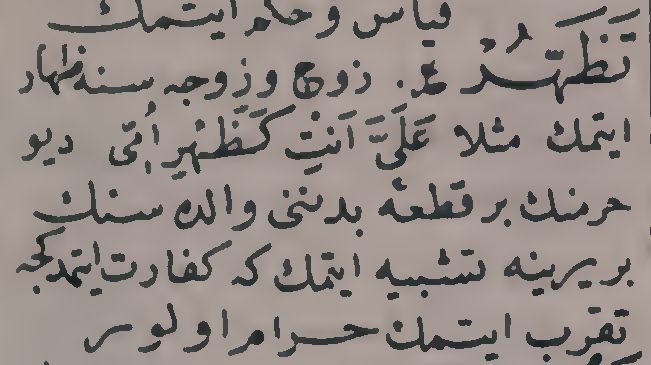 قياس و حكم ايتمك
تَظَهُّرْ ع. زوج و زوجه سنه ظهار
ايتمك مثلا عَلَيَّ اَنْتِ كَظَهْرِ اُمّى ديو
حرمنك بر قطعهٔ بدننى والده سنك
بر يرينه تشبيه ايتمك كه كفارت ايتمدكجه
تقرب ايتمك حرام اولور